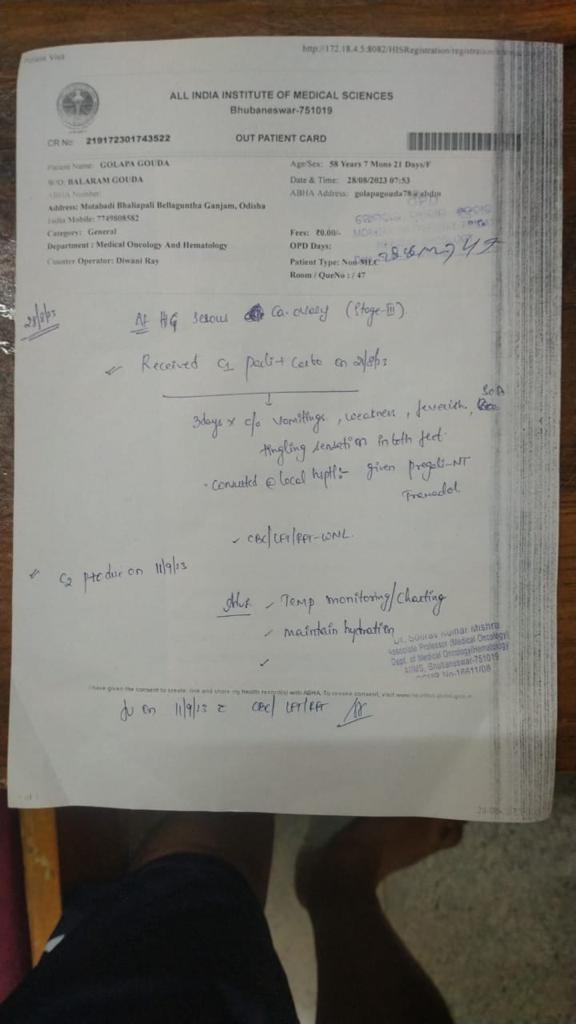 Patient Visit
http://172.18.4.5:8082/HISRegistration/registration
ALL INDIA INSTITUTE OF MEDICAL SCIENCES
Bhubaneswar-751019
CR No: 219172301743522
OUT PATIENT CARD
Patient Name: GOLAPA GOUDA
Age/Sex: 58 Years 7 Mons 21 Days/F
W/O: BALARAM GOUDA
Date & Time: 28/08/2023 07:53
ABHA Number:
ABHA Address: golapagouda78@abdm
Address: Motabadi Bhaliapali Bellaguntha Ganjam, Odisha
India Mobile: 7749808582
Category: General
Fees: ₹0.00/-
OPD
Department : Medical Oncology And Hematology
OPD Days:
Counter Operator: Diwani Ray
Patient Type: Non-MLC
Room / QueNo : / 47
28/8/23
HG serous Ca. ovary (Stage-III)
Received C1 pacli + Carbo on 21/8/23
3days x c/o vomitings, weakness, feverish, SOB
tingling sensation in both feet.
Consulted @ local hsptl:- given pregali-NT
Tramadol
CBC/LFT/RFT-WNL.
C2 due on 11/9/23
Adv. Temp monitoring/Charting
maintain hydration
Dr. Sourav Kumar Mishra
Associate Professor (Medical Oncology)
Dept. of Medical Oncology/Hematology
AIIMS, Bhubaneswar-751019
I have given the consent to create, link and share my health record(s) with ABHA. To revoke consent, visit
on 11/9/23 c̄ CBC/LFT/RFT